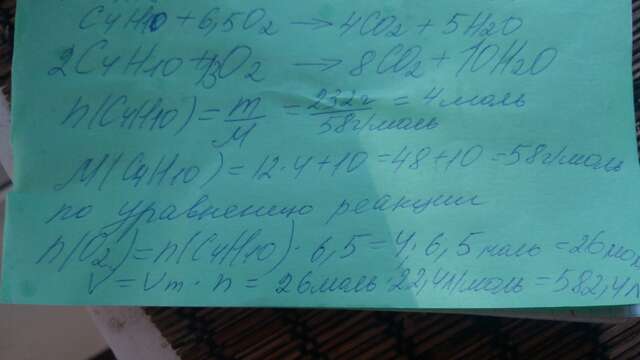 C4H10 + 6,5O2 → 4CO2 + 5H2O
2C4H10 + 13O2 → 8CO2 + 10H2O
n(C4H10) = m/M = 232г/58г/моль = 4 моль
M(C4H10) = 12·4+10 = 48+10 = 58г/моль
по уравнению реакции
n(O2) = n(C4H10) · 6,5 = 4·6,5 моль = 26 мол
V = Vm · n = 26 моль · 22,4 л/моль = 582,4 л